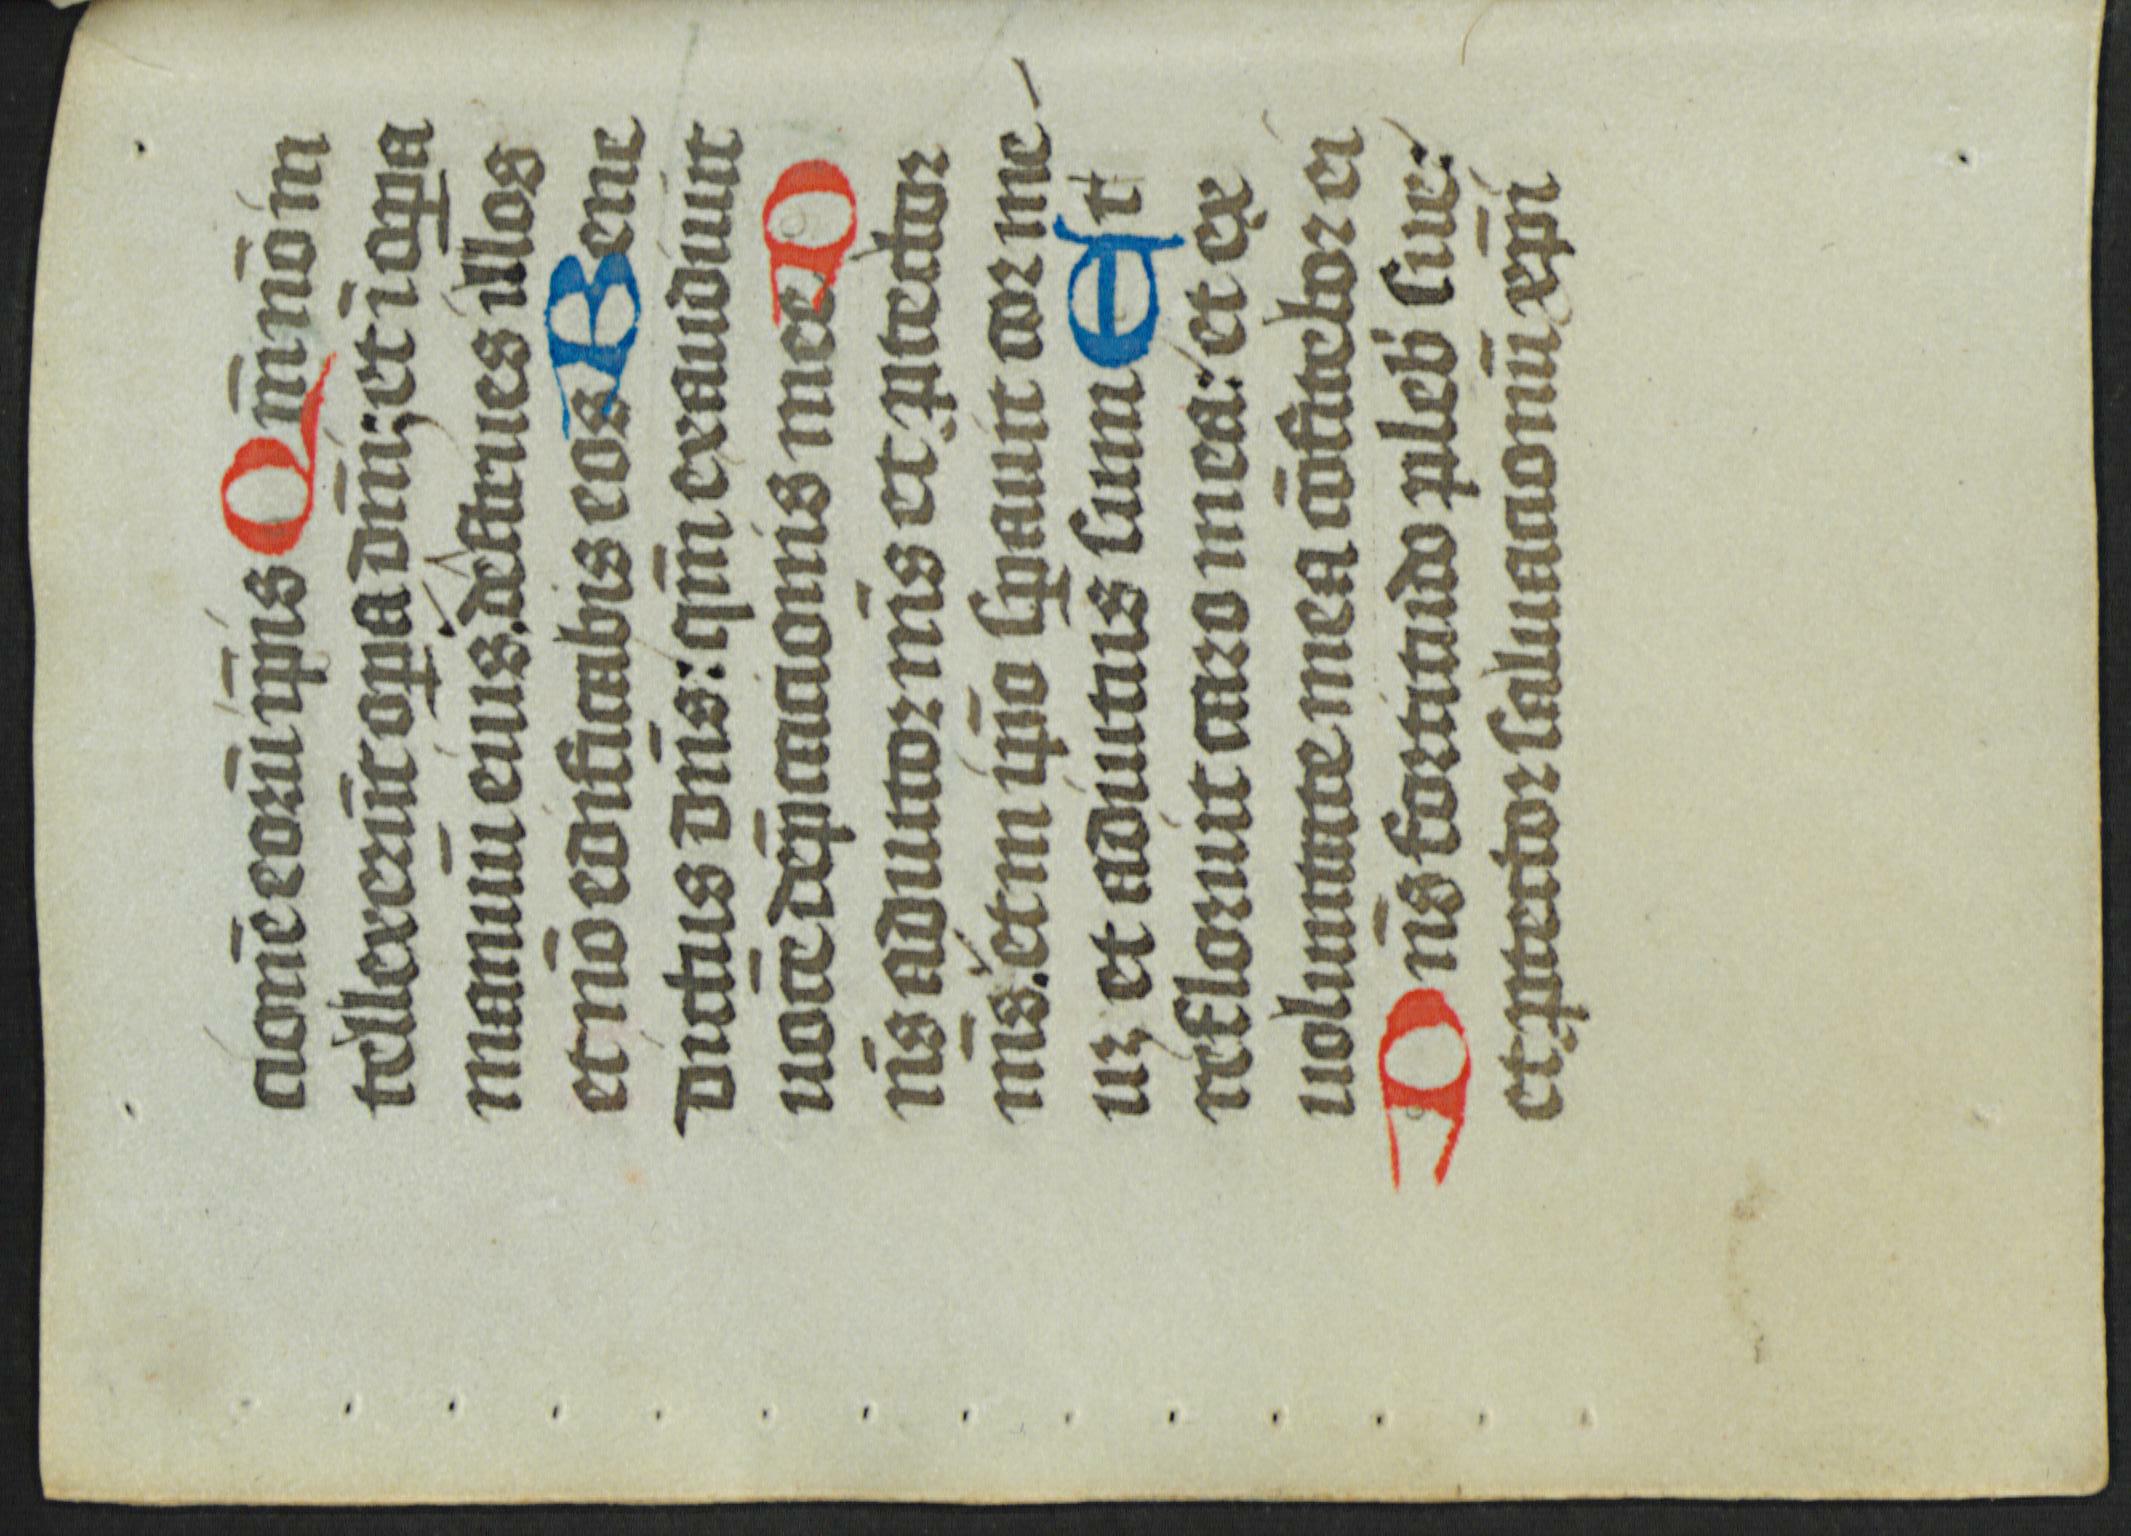 cionē eorū ip̄is Qm̄ nō ī
tellexerūt op̲a dn̄i; et ī op̲a
manuū eius. destrues illos
et nō edificabis eos Bene
dictus dn̄s: qm̄ exaudiuit
uocē dep̄cacionis mee D
n̄s adiutor m̄s et ꝓtector
m̄s. et in ip̄o sp̲auit cor me
uꝫ et adiutus sum Et
refloruit caro mea: et ex
uoluntate mea cōfitebor ei
Dn̄s fortitudo pleb' sue:
et ꝓtector saluacionū xp̄i